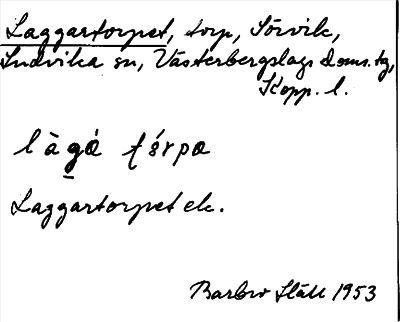 Laggartorpet, torp, Sörvik,
Ludvika sn, Västerbergslags doms.tg,
Kopp. l.
Laggartorpet ek.
Barbro Ståll 1953